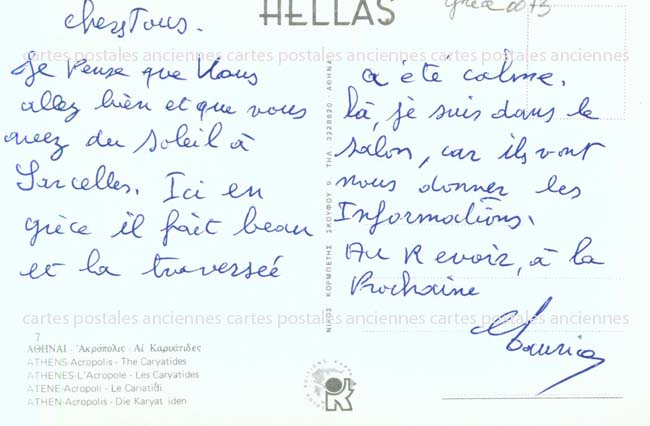 HELLAS
Grèce 0073
chers Tous.
cartes postales anciennes cartes postales anciennes cartes postales anciennes
Je Pense que Vous
allez bien et que vous
avez du soleil à
Sarcelles. Ici en
grèce il fait beau
et la traverseé
a été calme.
là, je suis dans le
salon, car ils vont
nous donner les
Informations.
Au Revoir, à la
Prochaine
cartes postales anciennes cartes postales anciennes cartes postales anciennes
ΝΙΚΟΣ ΚΟΡΜΠΕΤΗΣ ΣΚΟΥΦΟΥ 9 ΤΗΛ 3228820 · ΑΘΗΝΑ
7
ΑΘΗΝΑΙ - Ἀκρόπολις - Αἱ Καρυάτιδες
ATHENS-Acropolis - The Caryatides
ATHENES-L'Acropole - Les Caryatides
ATENE-Acropoli - Le Cariatidi
ATHEN-Acropolis - Die Karyat iden